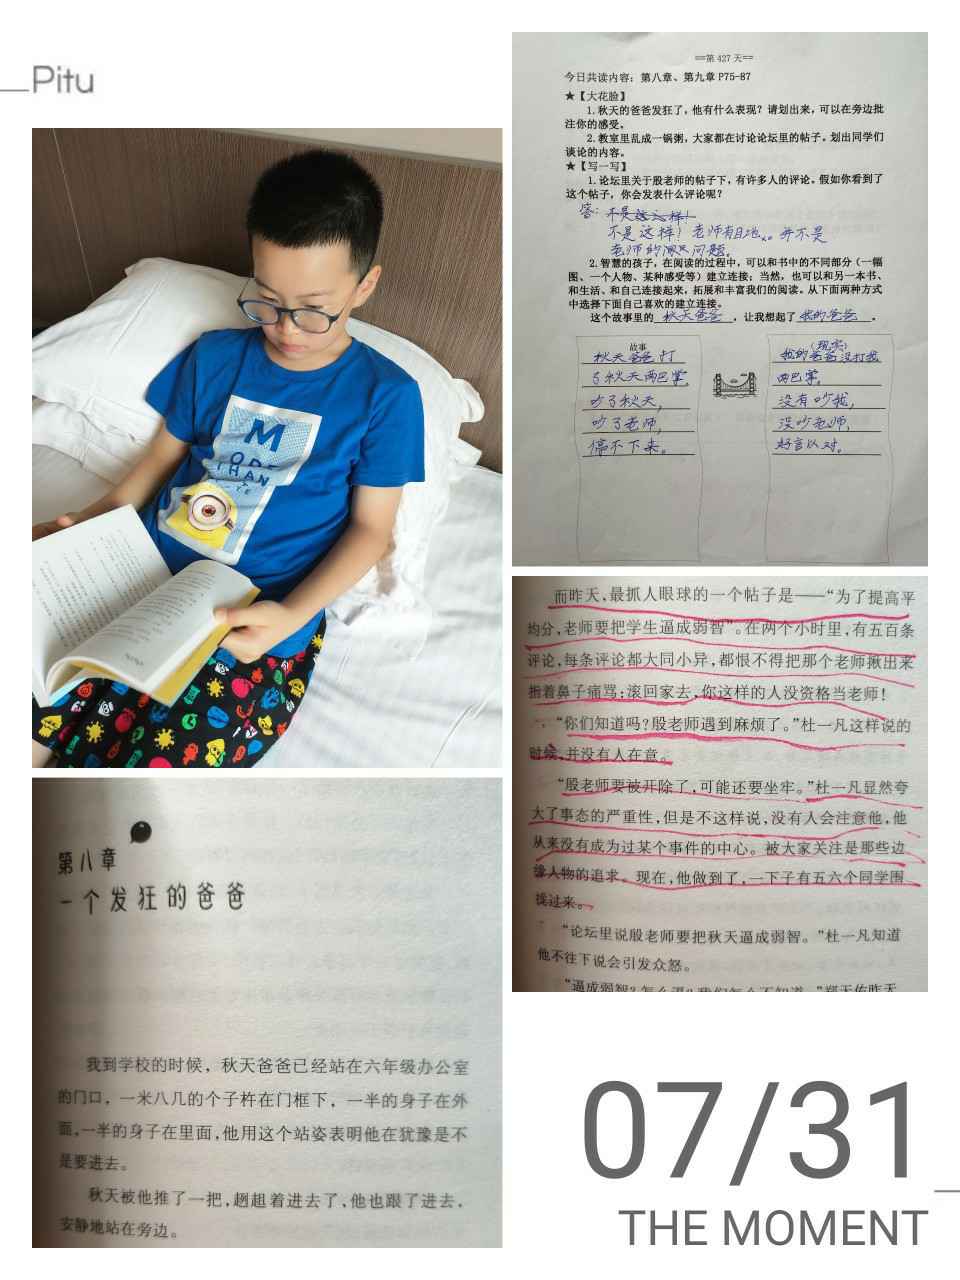 Pitu
M
ODE
THAN
==第 427 天==
今日共读内容：第八章、第九章 P75-87
★【大花脸】
1.秋天的爸爸发狂了，他有什么表现？请划出来，可以在旁边批
注你的感受。
2.教室里乱成一锅粥，大家都在讨论论坛里的帖子。划出同学们
谈论的内容。
★【写一写】
1.论坛里关于殷老师的帖子下，有许多人的评论。假如你看到了
这个帖子，你会发表什么评论呢？
答：不是这么样！
不是这样！老师有目地。并不是
老师的问题。
2.智慧的孩子，在阅读的过程中，可以和书中的不同部分（一幅
图、一个人物、某种感受等）建立连接；当然，也可以和另一本书、
和生活、和自己连接起来，拓展和丰富我们的阅读。从下面两种方式
中选择下面自己喜欢的建立连接。
这个故事里的 秋天爸爸 ，让我想起了 我的爸爸 。
故事
秋天爸爸打
了秋天两巴掌，
吵了秋天，
吵了老师，
停不下来。
（现实）
我的爸爸没打我
两巴掌，
没有吵我，
没吵老师，
好言以对。
而昨天，最抓人眼球的一个帖子是——“为了提高平
均分，老师要把学生逼成弱智”。在两个小时里，有五百条
评论，每条评论都大同小异，都恨不得把那个老师揪出来
指着鼻子痛骂：滚回家去，你这样的人没资格当老师！
“你们知道吗？殷老师遇到麻烦了。”杜一凡这样说的
时候，并没有人在意。
“殷老师要被开除了，可能还要坐牢。”杜一凡显然夸
大了事态的严重性，但是不这样说，没有人会注意他，他
从来没有成为过某个事件的中心。被大家关注是那些边
缘人物的追求。现在，他做到了，一下子有五六个同学围
拢过来。
“论坛里说殷老师要把秋天逼成弱智。”杜一凡知道
他不往下说会引发众怒。
第八章
一个发狂的爸爸
我到学校的时候，秋天爸爸已经站在六年级办公室
的门口，一米八几的个子杵在门框下，一半的身子在外
面，一半的身子在里面，他用这个站姿表明他在犹豫是不
是要进去。
秋天被他推了一把，趔趄着进去了，他也跟了进去，
安静地站在旁边。
07/31
THE MOMENT